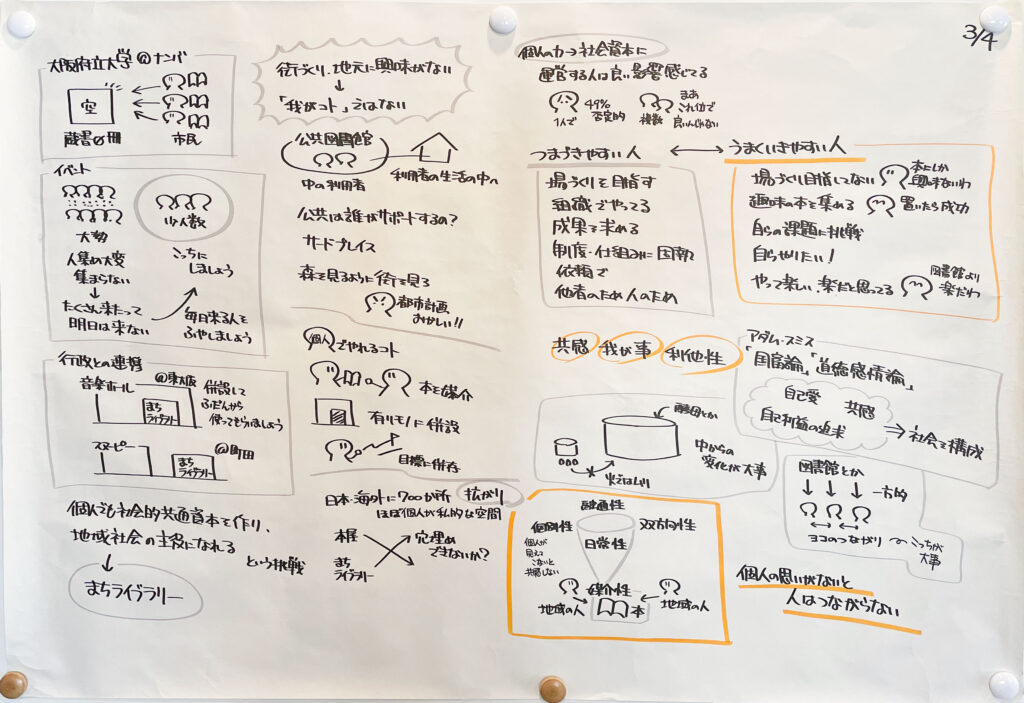 3/4
大阪府立大学@ナンバ
空
蔵書0冊
市民
イベント
大勢
少人数
人集め大変
集まらない
たくさん来たって
明日は来ない
こっちに
しましょう
毎日来る人を
ふやしましょう
行政との連携
音楽ホール
@東大阪
まち
ライブラリー
併設して
ふだんから
使ってもらいましょう
スヌーピー
まち
ライブラリー
@町田
個人でも社会的共通資本を作り、
地域社会の主役になれる
という挑戦
まちライブラリー
街づくり、地元に興味がない
「我がコト」ではない
公共図書館
中の利用者
利用者の生活の中へ
公共は誰がサポートするの?
サードプレイス
森を見るように街を見る
都市計画、
おかしい!!
個人でやれるコト
本を媒介
有りモノに併設
目標に併存
日本・海外に700か所
ほぼ個人が私的な空間
拡がり
本屋
まち
ライブラリー
穴埋め
できないか?
個人の力→社会資本に
運営する人は良い影響感じてる
1人で
49%
否定的
複数
まあ
これ位で
良いんじゃない
つまづきやすい人
うまくいきやすい人
場づくりを目指す
組織でやってる
成果を求める
制度・仕組みに固執
依頼で
他者のため人のため
場づくり目指してない
本にしか
興味ないわ
趣味の本を集める
置いたら成功
自らの課題に挑戦
自らやりたい!
やって楽しい、楽だと思ってる
図書館より
楽だわ
共感
我が事
利他性
アダム・スミス
「国富論」「道徳感情論」
自己愛
共感
自己利益の追求
⇒社会を構成
酵母とか
中からの
変化が大事
図書館とか
一方的
ヨコのつながり
こっちが
大事
融通性
個別性
双方向性
個人が
見えて
こないと
共感しない
日常性
媒介性
地域の人
本
地域の人
個人の思いがないと
人はつながらない